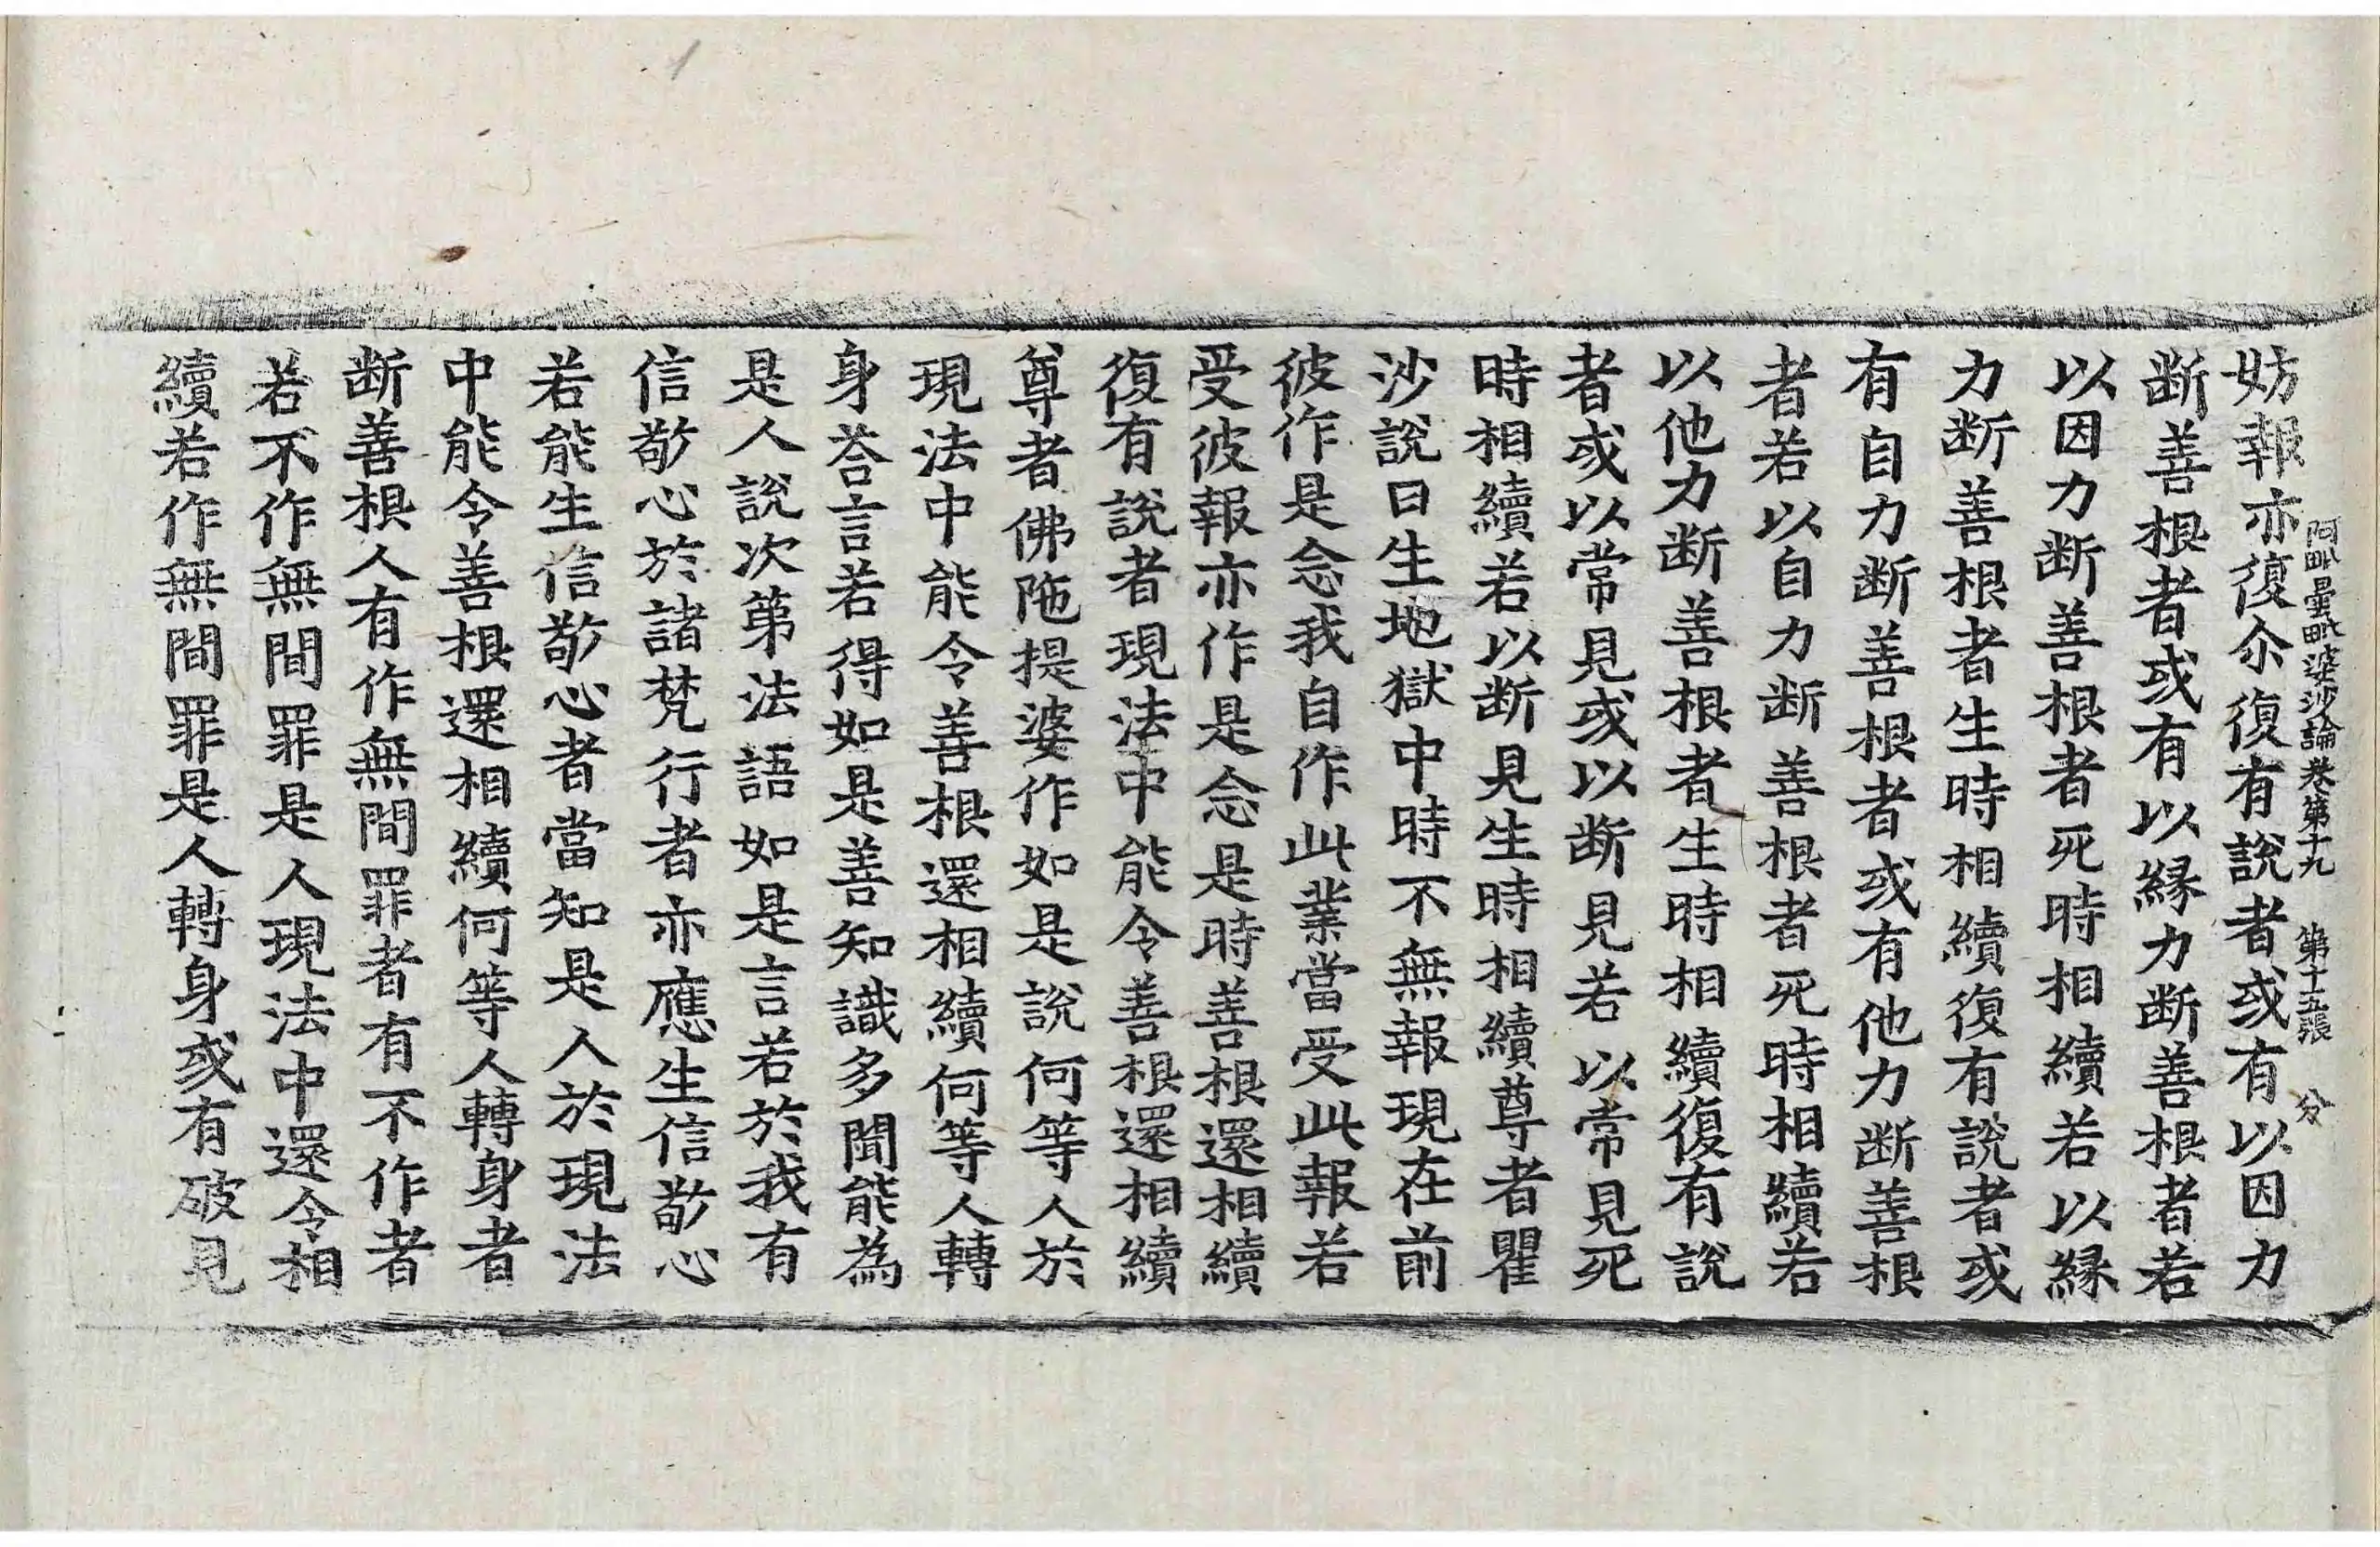 阿毗曇毗婆沙論卷第十九 第十五張 分
妨報亦復尒復有說者或有以因力
断善根者或有以緣力断善根者若
以因力断善根者死時相續若以緣
力断善根者生時相續復有說者或
有自力断善根者或有他力断善根
者若以自力断善根者死時相續若
以他力断善根者生時相續復有說
者或以常見或以断見若以常見死
時相續若以断見生時相續尊者瞿
沙說曰生地獄中時不無報現在前
彼作是念我自作此業當受此報若
受彼報亦作是念是時善根還相續
復有說者現法中能令善根還相續
尊者佛陁提婆作如是說何等人於
現法中能令善根還相續何等人轉
身荅言若得如是善知識多聞能為
是人說次第法語如是言若於我有
信敬心於諸梵行者亦應生信敬心
若能生信敬心者當知是人於現法
中能令善根還相續何等人轉身者
断善根人有作無間罪者有不作者
若不作無間罪是人現法中還令相
續若作無間罪是人轉身或有破見